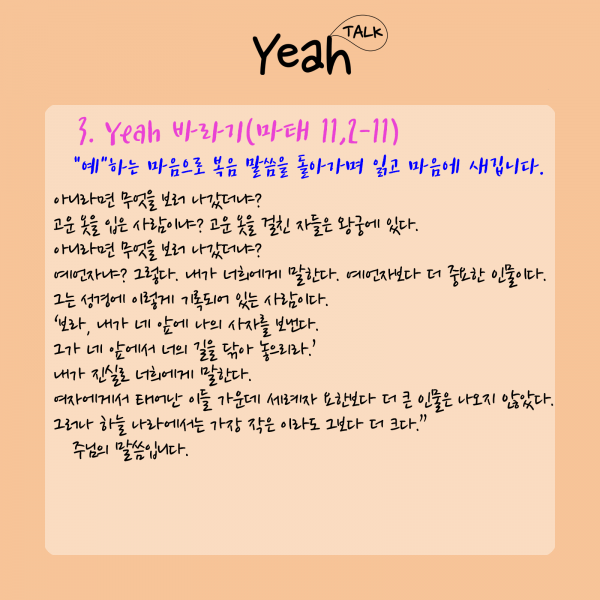 Yeah TALK
3. Yeah 바라기(마태 11,2-11)
"예"하는 마음으로 복음 말씀을 돌아가며 읽고 마음에 새깁니다.
아니라면 무엇을 보러 나갔더냐?
고운 옷을 입은 사람이냐? 고운 옷을 걸친 자들은 왕궁에 있다.
아니라면 무엇을 보러 나갔더냐?
예언자냐? 그렇다. 내가 너희에게 말한다. 예언자보다 더 중요한 인물이다.
그는 성경에 이렇게 기록되어 있는 사람이다.
‘보라, 내가 네 앞에 나의 사자를 보낸다.
그가 네 앞에서 너의 길을 닦아 놓으리라.’
내가 진실로 너희에게 말한다.
여자에게서 태어난 이들 가운데 세례자 요한보다 더 큰 인물은 나오지 않았다.
그러나 하늘 나라에서는 가장 작은 이라도 그보다 더 크다.”
주님의 말씀입니다.